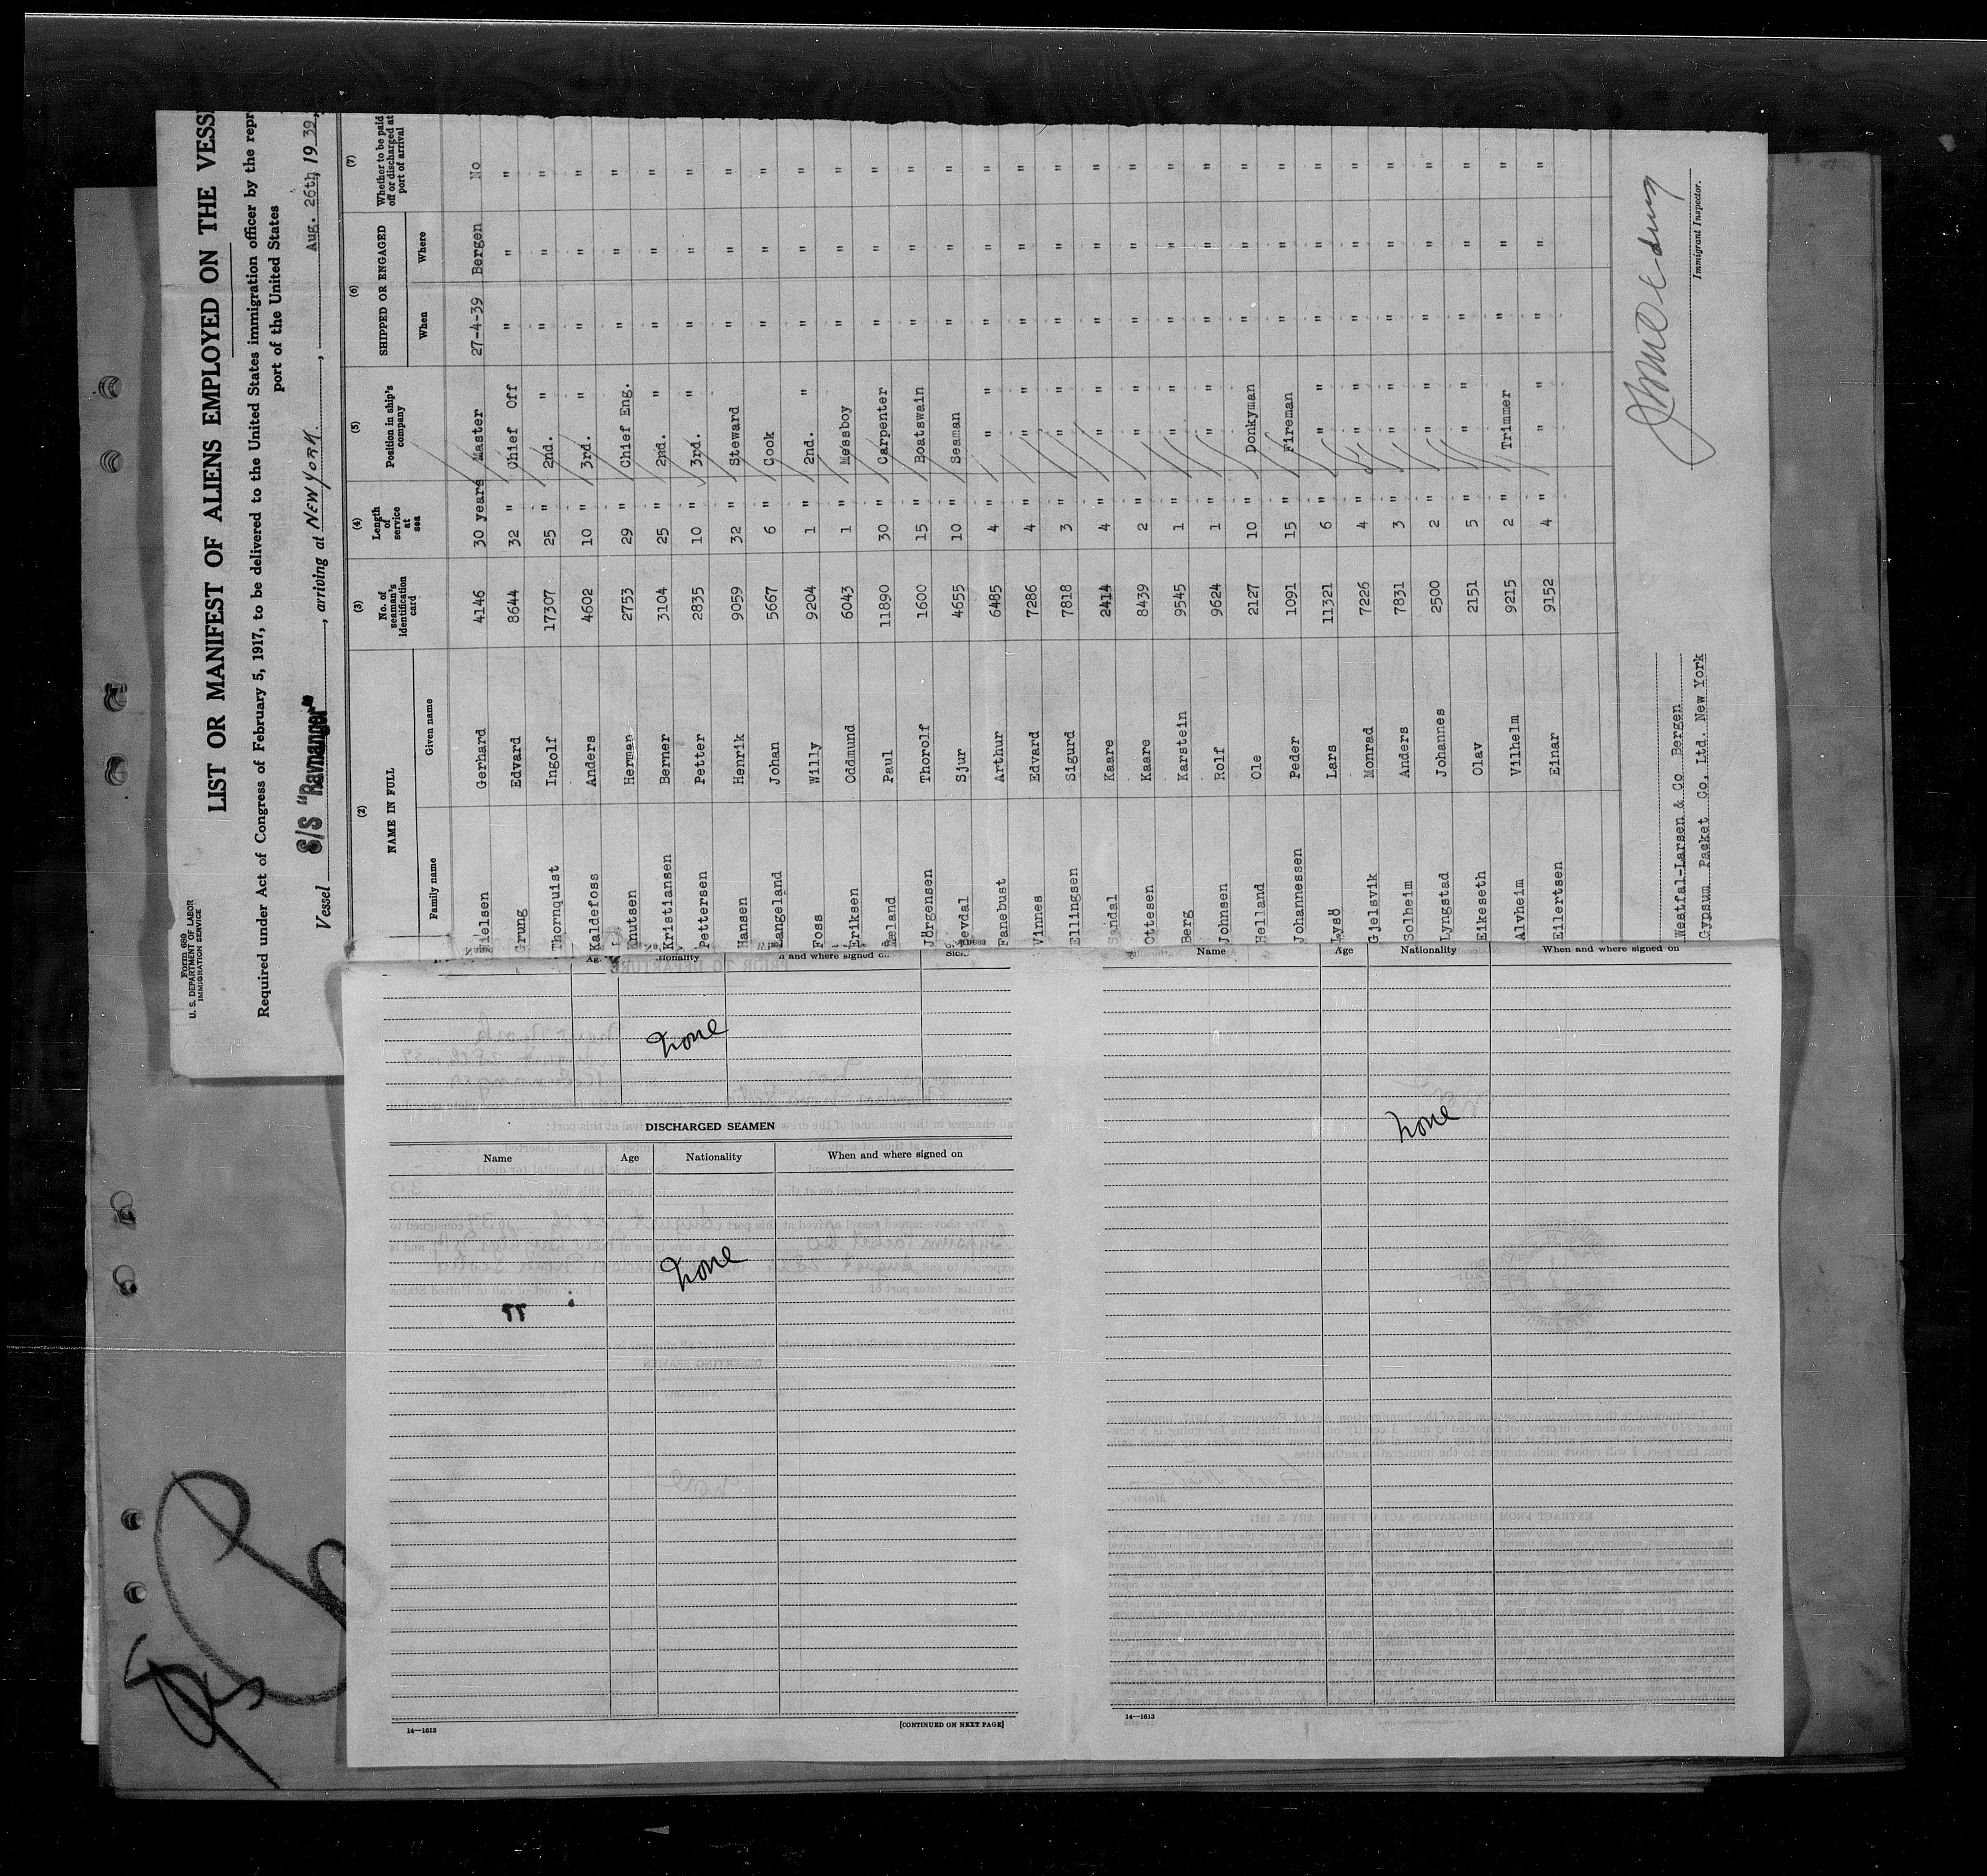 Form 680
U. S. DEPARTMENT OF LABOR
IMMIGRATION SERVICE
LIST OR MANIFEST OF ALIENS EMPLOYED ON THE VESS
Required under Act of Congress of February 5, 1917, to be delivered to the United States immigration officer by the repr
port of the United States
Vessel S/S "Ravnanger", arriving at NEW YORK, Aug. 26th, 19 39,
(2) (3) (4) (5) (6) (7)
NAME IN FULL No. of seaman's identification card Length of service at sea Position in ship's company SHIPPED OR ENGAGED Whether to be paid off or discharged at port of arrival
Family name Given name When Where
Nielsen Gerhard 4146 30 years Master 27-4-39 Bergen No
Grung Edvard 8644 32 " Chief Off " " "
Thornquist Ingolf 17307 25 " 2nd. " " " "
Kaldefoss Anders 4602 10 " 3rd. " " " "
Knutsen Herman 2753 29 " Chief Eng. " " "
Kristiansen Berner 3104 25 " 2nd. " " " "
Pettersen Petter 2835 10 " 3rd. " " " "
Hansen Henrik 9059 32 " Steward " " "
Langeland Johan 5667 6 " Cook " " "
Foss Willy 9204 1 " 2nd. " " " "
Eriksen Oddmund 6043 1 " Messboy " " "
Æland Paul 11890 30 " Carpenter " " "
Jörgensen Thorolf 1600 15 " Boatswain " " "
Devdal Sjur 4655 10 " Seaman " " "
Fanebust Arthur 6485 4 " " " " " "
Vinnes Edvard 7286 4 " " " " " "
Ellingsen Sigurd 7818 3 " " " " " "
Sandal Kaare 2414 4 " " " " " "
Ottesen Kaare 8439 2 " " " " " "
Berg Karstein 9545 1 " " " " " "
Johnsen Rolf 9624 1 " " " " " "
Helland Ole 2127 10 " Donkyman " " "
Johannessen Peder 1091 15 " Fireman " " "
Lysö Lars 11321 6 " " " " " "
Gjelsvik Monrad 7226 4 " " " " " "
Solheim Anders 7831 3 " " " " " "
Lyngstad Johannes 2500 2 " " " " " "
Eikeseth Olav 2151 5 " " " " " "
Alvheim Vilhelm 9215 2 " Trimmer " " "
Eilertsen Einar 9152 4 " " " " " "
Westfal-Larsen & Co Bergen
Gypsum Packet Co, Ltd. New York
Immigrant Inspector.
and where signed
none
DISCHARGED SEAMEN
Name Age Nationality When and where signed on
none
14—1613 [CONTINUED ON NEXT PAGE]
Name Age Nationality When and where signed on
none
14—1613